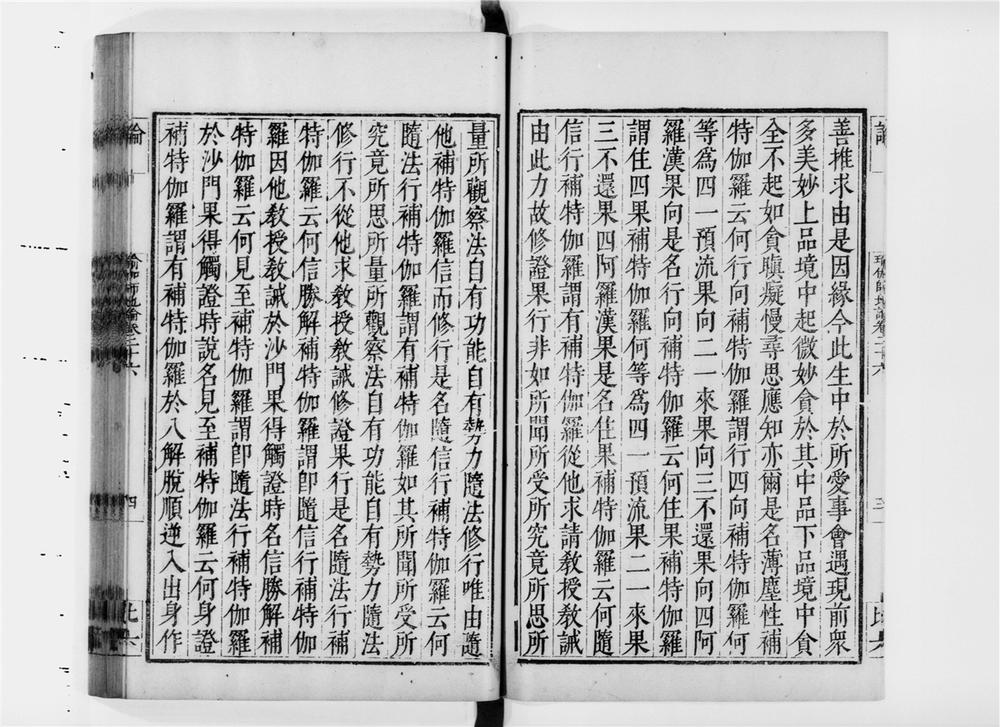 善推求由是因緣今此生中於所愛事會遇現前衆
多美妙上品境中起微妙貪於其中品下品境中貪
全不起如貪瞋癡慢尋思應知亦爾是名薄塵性補
特伽羅云何行向補特伽羅謂行四向補特伽羅何
等爲四一預流果向二一來果向三不還果向四阿
羅漢果向是名行向補特伽羅云何住果補特伽羅
謂住四果補特伽羅何等爲四一預流果二一來果
三不還果四阿羅漢果是名住果補特伽羅云何隨
信行補特伽羅謂有補特伽羅從他求請教授教誡
由此力故修證果行非如所聞所受所究竟所思所
量所觀察法自有功能自有勢力隨法修行唯由隨
他補特伽羅信而修行是名隨信行補特伽羅云何
隨法行補特伽羅謂有補特伽羅如其所聞所受所
究竟所思所量所觀察法自有功能自有勢力隨法
修行不從他求教授教誡修證果行是名隨法行補
特伽羅云何信勝解補特伽羅謂卽隨信行補特伽
羅因他教授教誡於沙門果得觸證時名信勝解補
特伽羅云何見至補特伽羅謂卽隨法行補特伽羅
於沙門果得觸證時說名見至補特伽羅云何身證
補特伽羅謂有補特伽羅於八解脫順逆入出身作
論
瑜伽師地論卷二十六
三
論
瑜伽師地論卷二十六
四